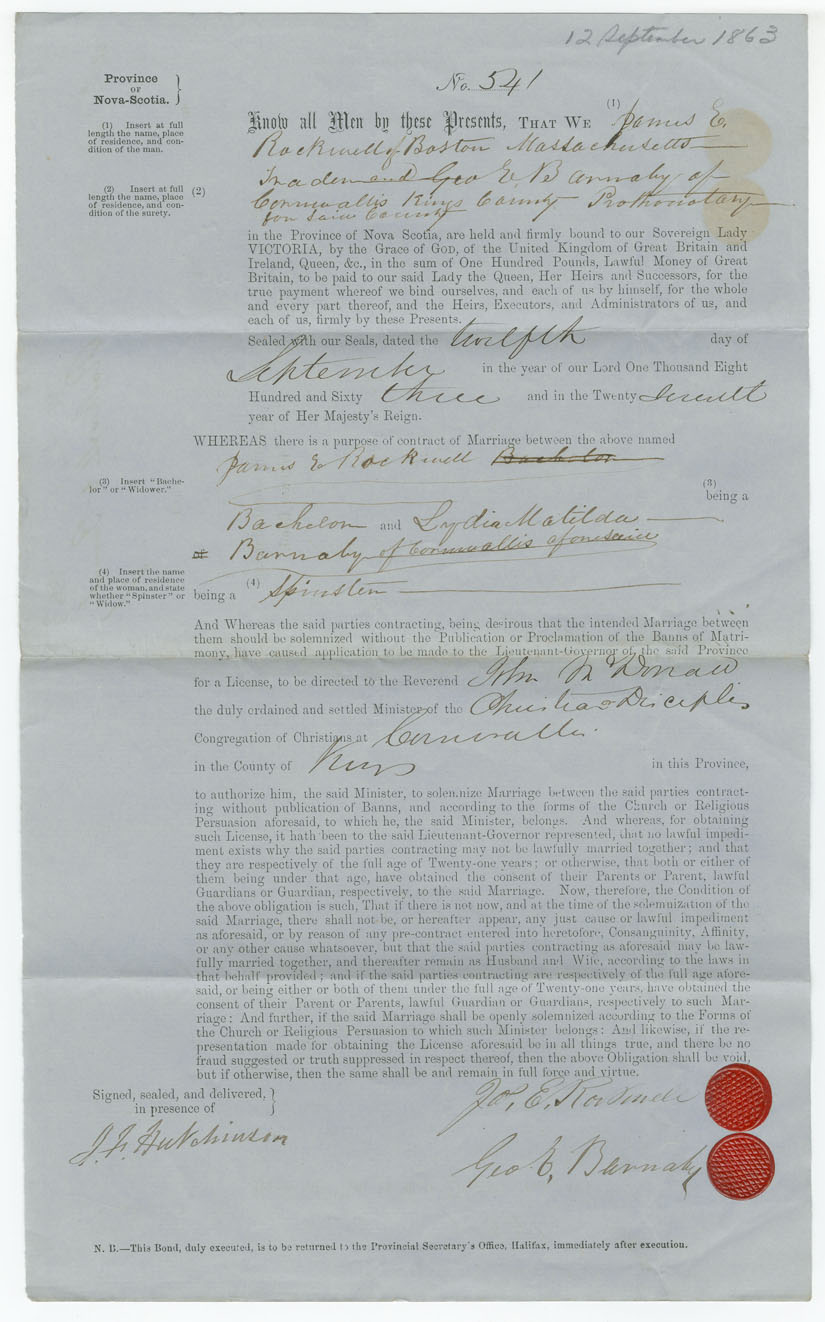 12 September 1863
Province
OF
Nova-Scotia.
No. 541
(1) Insert at full
length the name, place
of residence, and con-
dition of the man.
Know all Men by these Presents, THAT WE (1) James E.
Rockwell of Boston Massachusetts
(2) Insert at full
length the name, place
of residence, and con-
dition of the surety.
(2)
Trader and Geo E Barnaby of
Cornwallis Kings County Prothonotary
for said County
in the Province of Nova Scotia, are held and firmly bound to our Sovereign Lady
VICTORIA, by the Grace of GOD, of the United Kingdom of Great Britain and
Ireland, Queen, &c., in the sum of One Hundred Pounds, Lawful Money of Great
Britain, to be paid to our said Lady the Queen, Her Heirs and Successors, for the
true payment whereof we bind ourselves, and each of us by himself, for the whole
and every part thereof, and the Heirs, Executors, and Administrators of us, and
each of us, firmly by these Presents.
Sealed with our Seals, dated the twelfth day of
September in the year of our Lord One Thousand Eight
Hundred and Sixty three and in the Twenty seventh
year of Her Majesty's Reign.
WHEREAS there is a purpose of contract of Marriage between the above named
James E Rockwell Bachelor
(3) Insert "Bache-
lor" or "Widower."
(3)
being a
Bachelor and Lydia Matilda
of Barnaby of Cornwallis aforesaid
(4) Insert the name
and place of residence
of the woman, and state
whether "Spinster" or
"Widow."
being a (4) Spinster
And Whereas the said parties contracting, being desirous that the intended Marriage between
them should be solemnized without the Publication or Proclamation of the Banns of Matri-
mony, have caused application to be made to the Lieutenant-Governor of the said Province
for a License, to be directed to the Reverend John McDonald
the duly ordained and settled Minister of the Christian Disciples
Congregation of Christians at Cornwallis
in the County of Kings in this Province,
to authorize him, the said Minister, to solemnize Marriage between the said parties contract-
ing without publication of Banns, and according to the forms of the Church or Religious
Persuasion aforesaid, to which he, the said Minister, belongs. And whereas, for obtaining
such License, it hath been to the said Lieutenant-Governor represented, that no lawful impedi-
ment exists why the said parties contracting may not be lawfully married together; and that
they are respectively of the full age of Twenty-one years; or otherwise, that both or either of
them being under that age, have obtained the consent of their Parents or Parent, lawful
Guardians or Guardian, respectively, to the said Marriage. Now, therefore, the Condition of
the above obligation is such, That if there is not now, and at the time of the solemnization of the
said Marriage, there shall not be, or hereafter appear, any just cause or lawful impediment
as aforesaid, or by reason of any pre-contract entered into heretofore, Consanguinity, Affinity,
or any other cause whatsoever, but that the said parties contracting as aforesaid may be law-
fully married together, and thereafter remain as Husband and Wife, according to the laws in
that behalf provided; and if the said parties contracting are respectively of the full age afore-
said, or being either or both of them under the full age of Twenty-one years, have obtained the
consent of their Parent or Parents, lawful Guardian or Guardians, respectively to such Mar-
riage: And further, if the said Marriage shall be openly solemnized according to the Forms of
the Church or Religious Persuasion to which such Minister belongs: And likewise, if the re-
presentation made for obtaining the License aforesaid be in all things true, and there be no
fraud suggested or truth suppressed in respect thereof, then the above Obligation shall be void,
but if otherwise, then the same shall be and remain in full force and virtue.
Signed, sealed, and delivered,
in presence of
Jas. E. Rockwell
J. F. Hutchinson
Geo E. Barnaby
N. B.—This Bond, duly executed, is to be returned to the Provincial Secretary's Office, Halifax, immediately after execution.